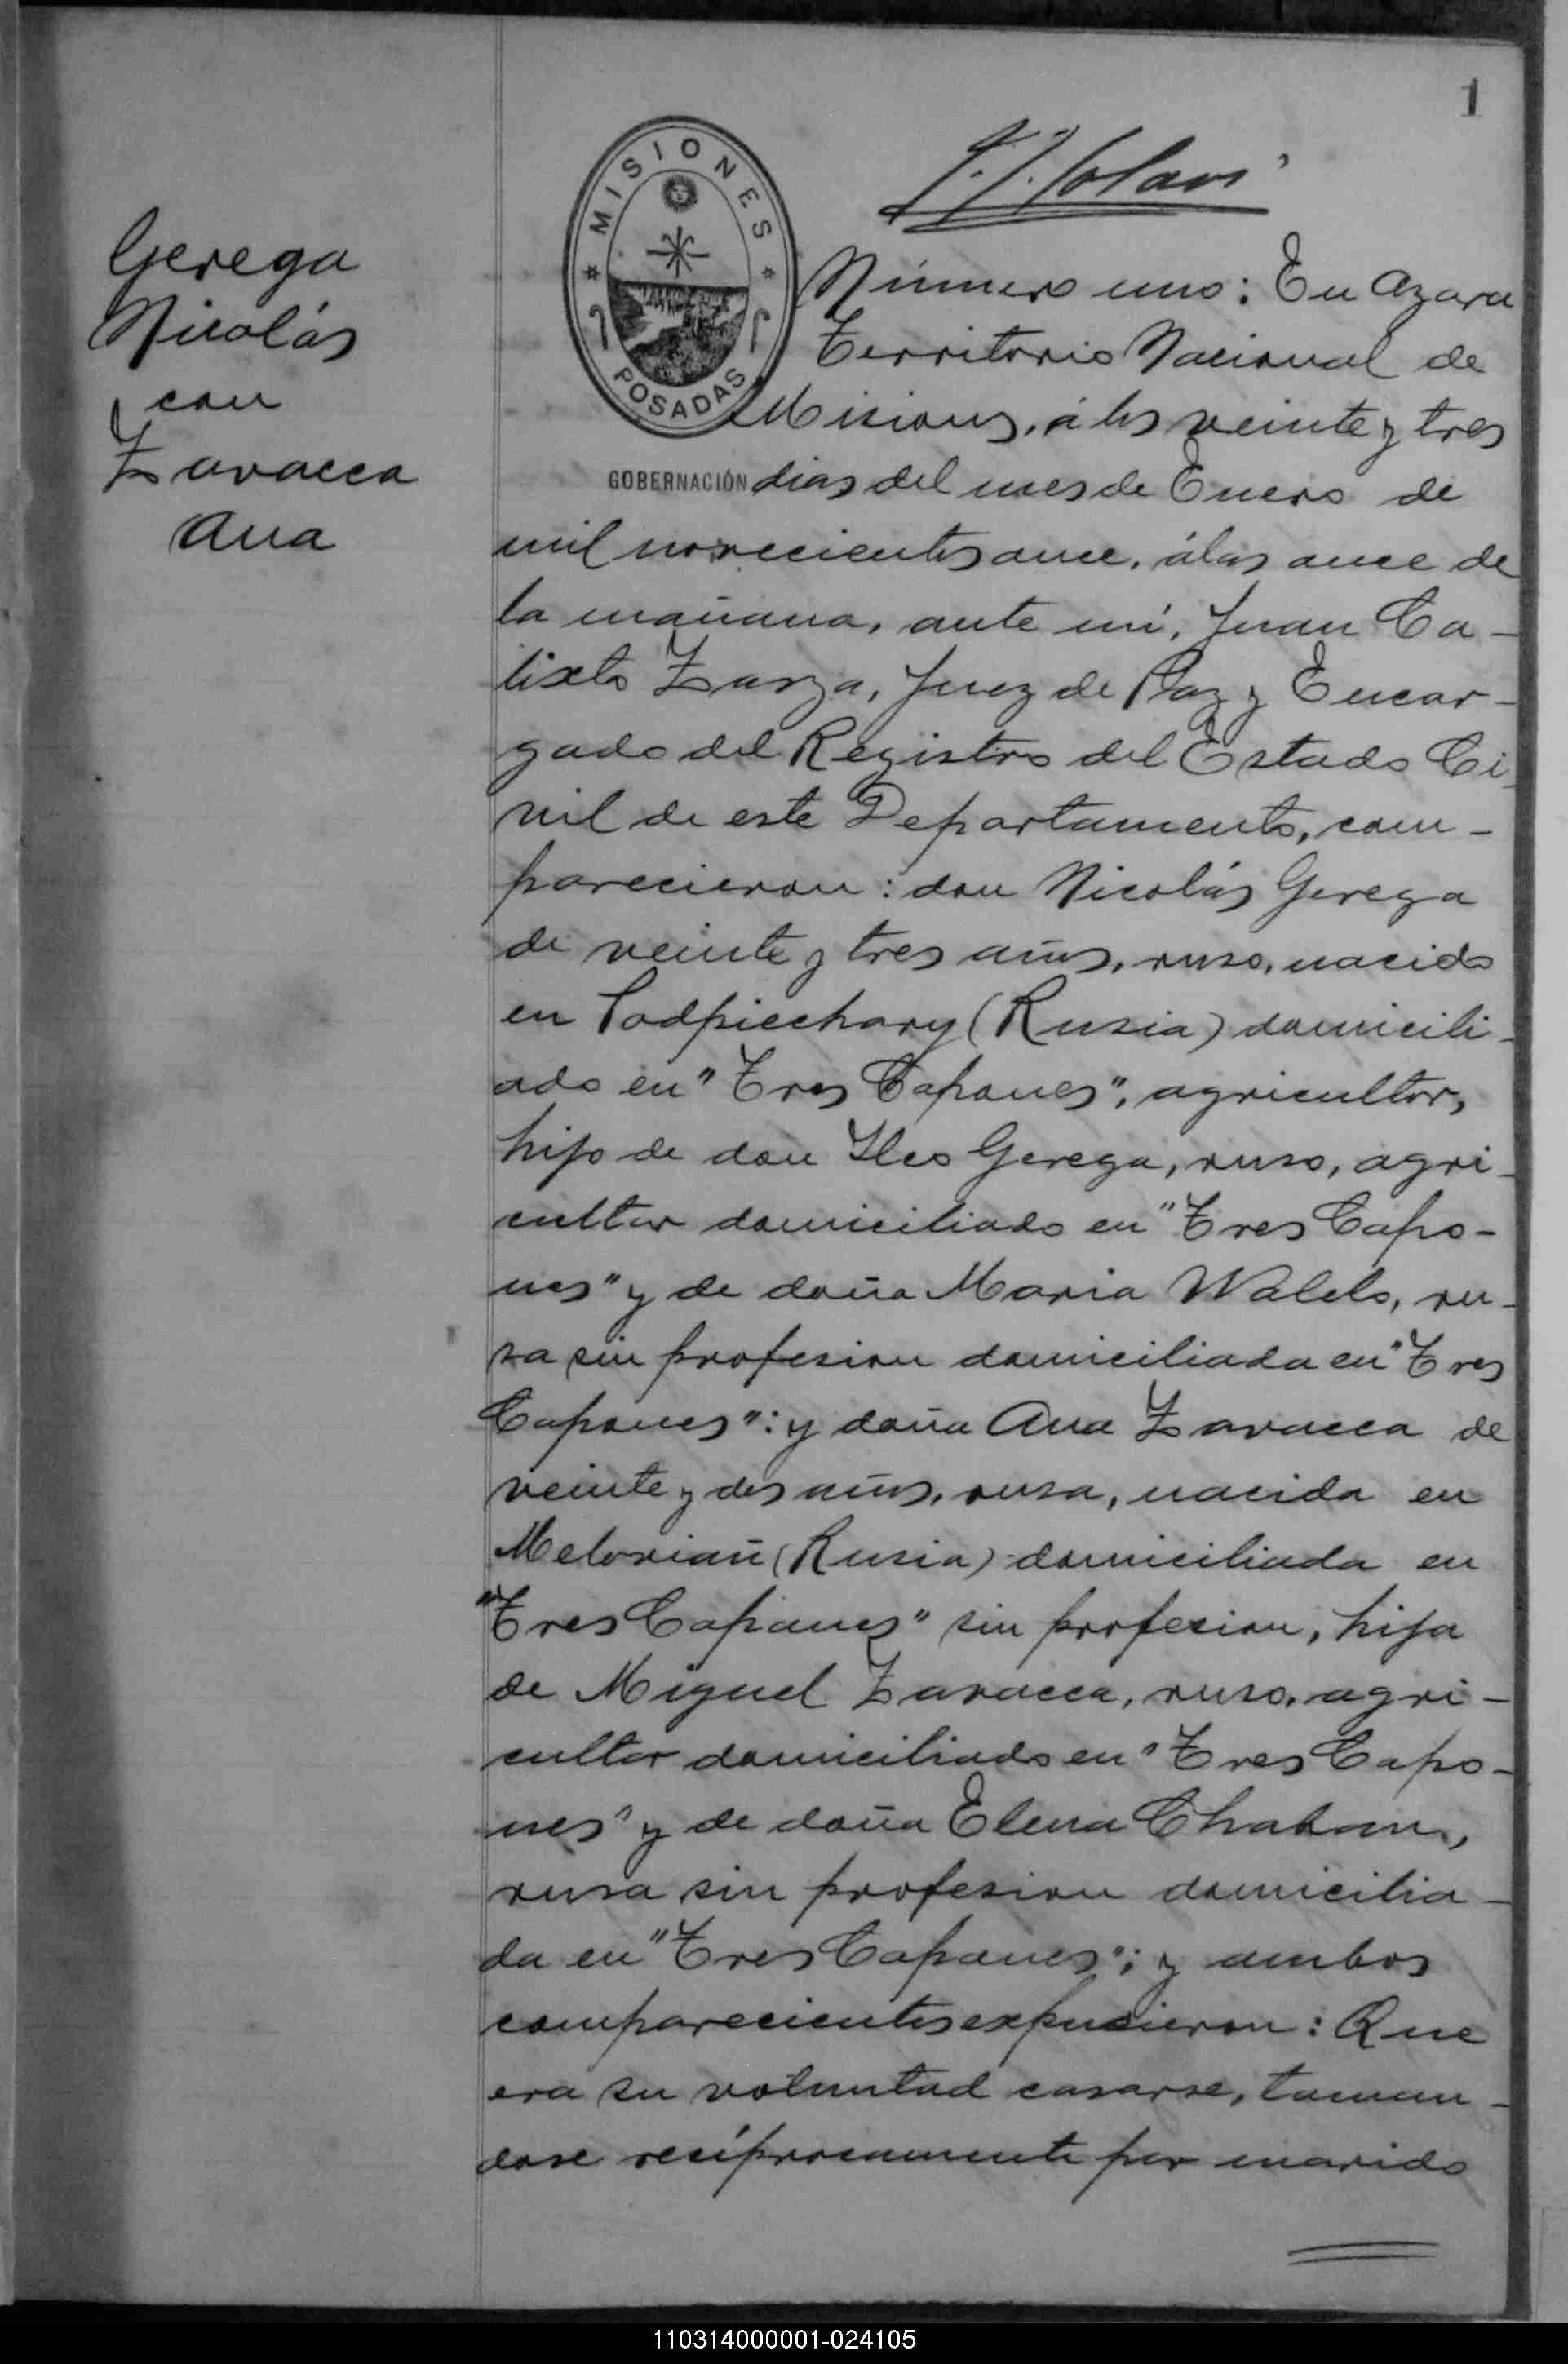 1
MISIONES
POSADAS
GOBERNACIÓN
Gerega
Nicolás
con
Zavacca
Ana
Número uno: En Azara
Territorio Nacional de
Misiones, á los veinte y tres
dias del mes de Enero de
mil novecientos once, á las once de
la mañana, ante mí, Juan Ca-
lixto Zarza, Juez de Paz y Encar-
gado del Registro del Estado Ci
vil de este Departamento, com-
parecieron: don Nicolás Gerega
de veinte y tres años, ruso, nacido
en Podpiechary (Rusia) domicili-
ado en "Tres Capones", agricultor,
hijo de don Ileo Gerega, ruso, agri-
cultor domiciliado en "Tres Capo-
nes" y de doña Maria Walelo, ru-
sa sin profesion domiciliada en "Tres
Capones": y doña Ana Zavacca de
veinte y dos años, rusa, nacida en
Meloviañ (Rusia) domiciliada en
"Tres Capones" sin profesion, hija
de Miguel Zavacca, ruso, agri-
cultor domiciliado en "Tres Capo-
nes" y de doña Elena
rusa sin profesion domicilia-
da en "Tres Capones"; y ambos
comparecientes expusieron: Que
era su voluntad casarse, toman-
dose recíprocamente por marido
110314000001-024105